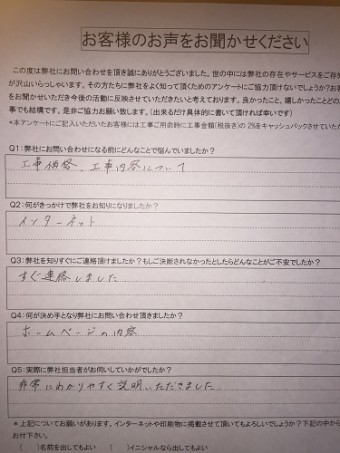 お客様のお声をお聞かせください
この度は弊社にお問い合わせを頂き誠にありがとうございました。世の中には弊社の存在やサービスをご存
が沢山いらっしゃいます。その方たちに弊社をよく知って頂くためのアンケートにご協力頂けないでしょうか?お客
をお聞かせいただき今後の活動に反映させていただきたいと考えております。良かったこと、嬉しかったことどの
事でも結構です。是非ご協力お願い致します。(出来るだけ具体的に書いて頂ければ幸いです)
*本アンケートにご記入いただいたお客様には工事ご用命時に工事金額(税抜き)の2%をキャッシュバックさせていただ
Q1:弊社にお問い合わせになる前にどんなことで悩んでいましたか?
工事価格、工事内容について
Q2:何がきっかけで弊社をお知りになりましたか?
インターネット
Q3:弊社を知りすぐにご連絡頂けましたか?もしご決断されなかったとしたらどんなことがご不安でしたか?
すぐ連絡しました
Q4:何が決め手となり弊社にお問い合わせ頂きましたか?
ホームページの内容
Q5:実際に弊社担当者がお伺いしていかがでしたか?
非常にわかりやすく説明いただきました
*上記についてお願いがあります。インターネットや印刷物に掲載させて頂いてもよろしいでしょうか?下記の中から
お付下さい。
( )名前を出してもよい ( )イニシャルなら出してもよい